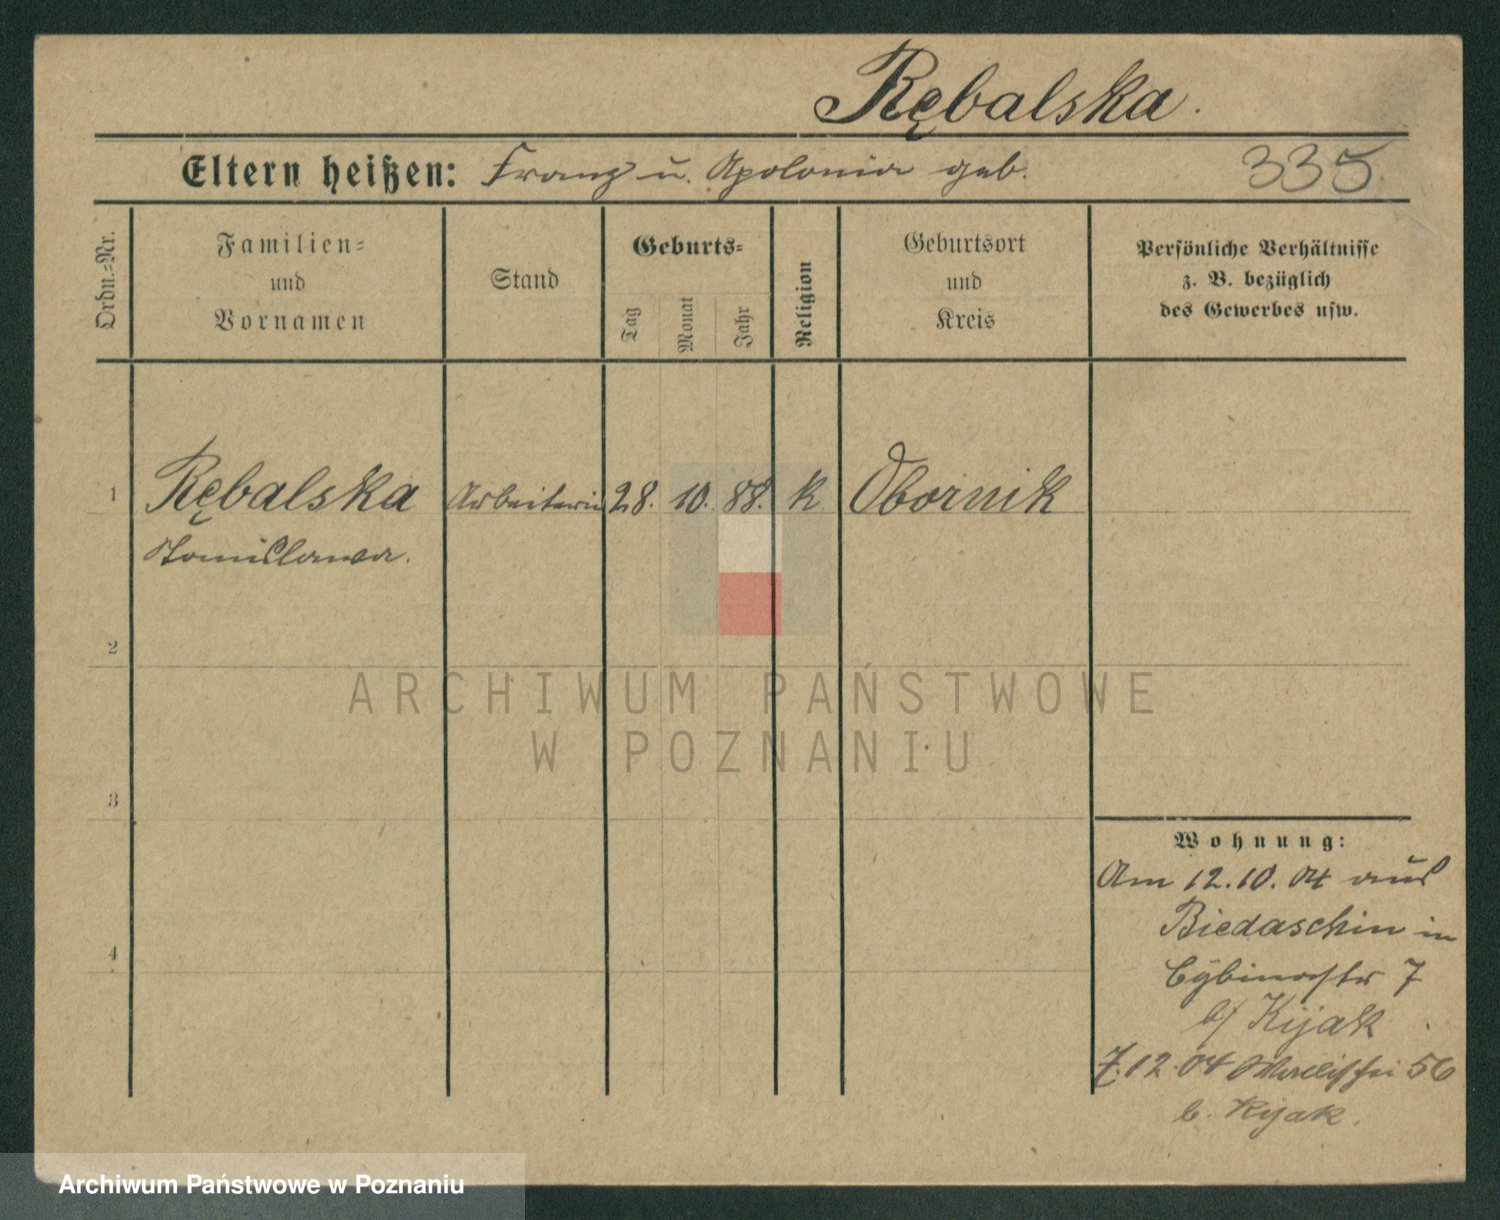 Rębalska.
Eltern heißen: Franz u. Apolonia geb. 335
Ordn.-Nr.
Familien-
und
Vornamen
Stand
Geburts-
Tag
Monat
Jahr
Religion
Geburtsort
und
Kreis
Persönliche Verhältnisse
z. B. bezüglich
des Gewerbes usw.
1 Rębalska Arbeiterin 28. 10. 88. k. Obornik
Stanislawa.
2
ARCHIWUM PAŃSTWOWE
W POZNANIU
3
Wohnung:
Am 12.10.04 aus
Biedaschin in
Cybinastr 7
b/ Kijak
4
7.12.04 56
b. Kijak.
Archiwum Państwowe w Poznaniu